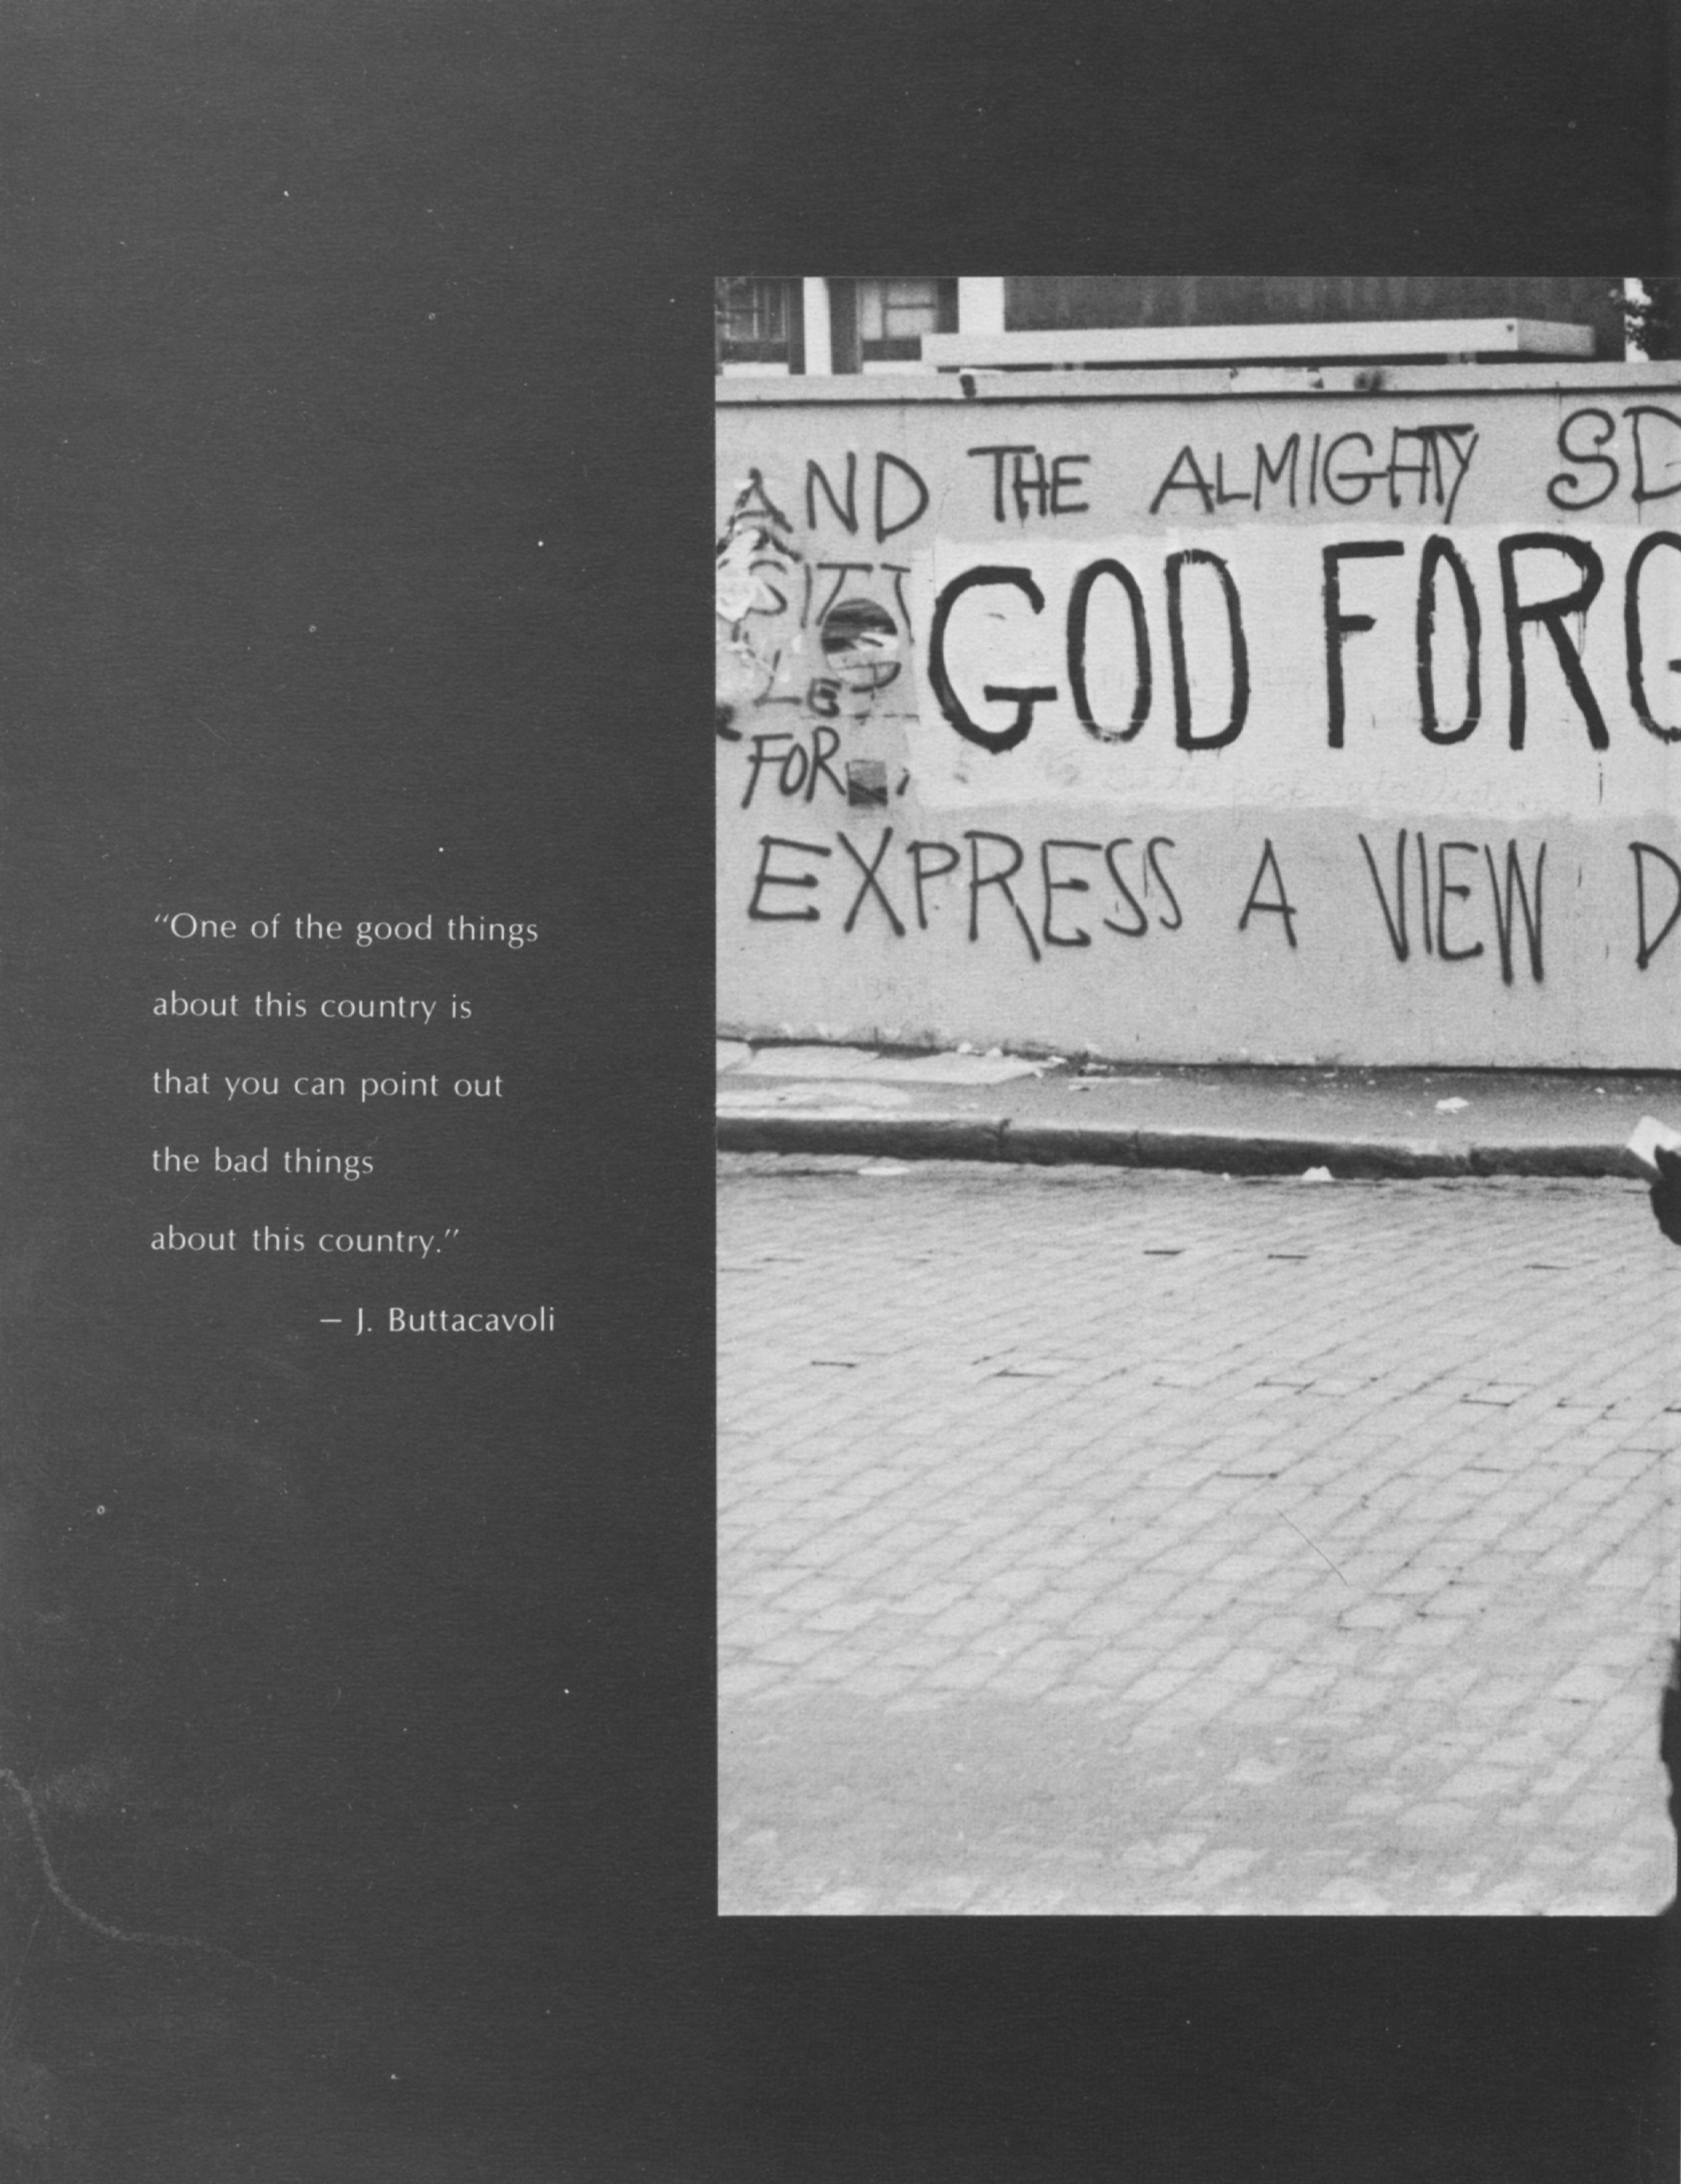 “One of the good things
about this country is
that you can point out
the bad things
about this country.”
— J. Buttacavoli
AND THE ALMIGHTY SD
GOD FORG
FOR
EXPRESS A VIEW D